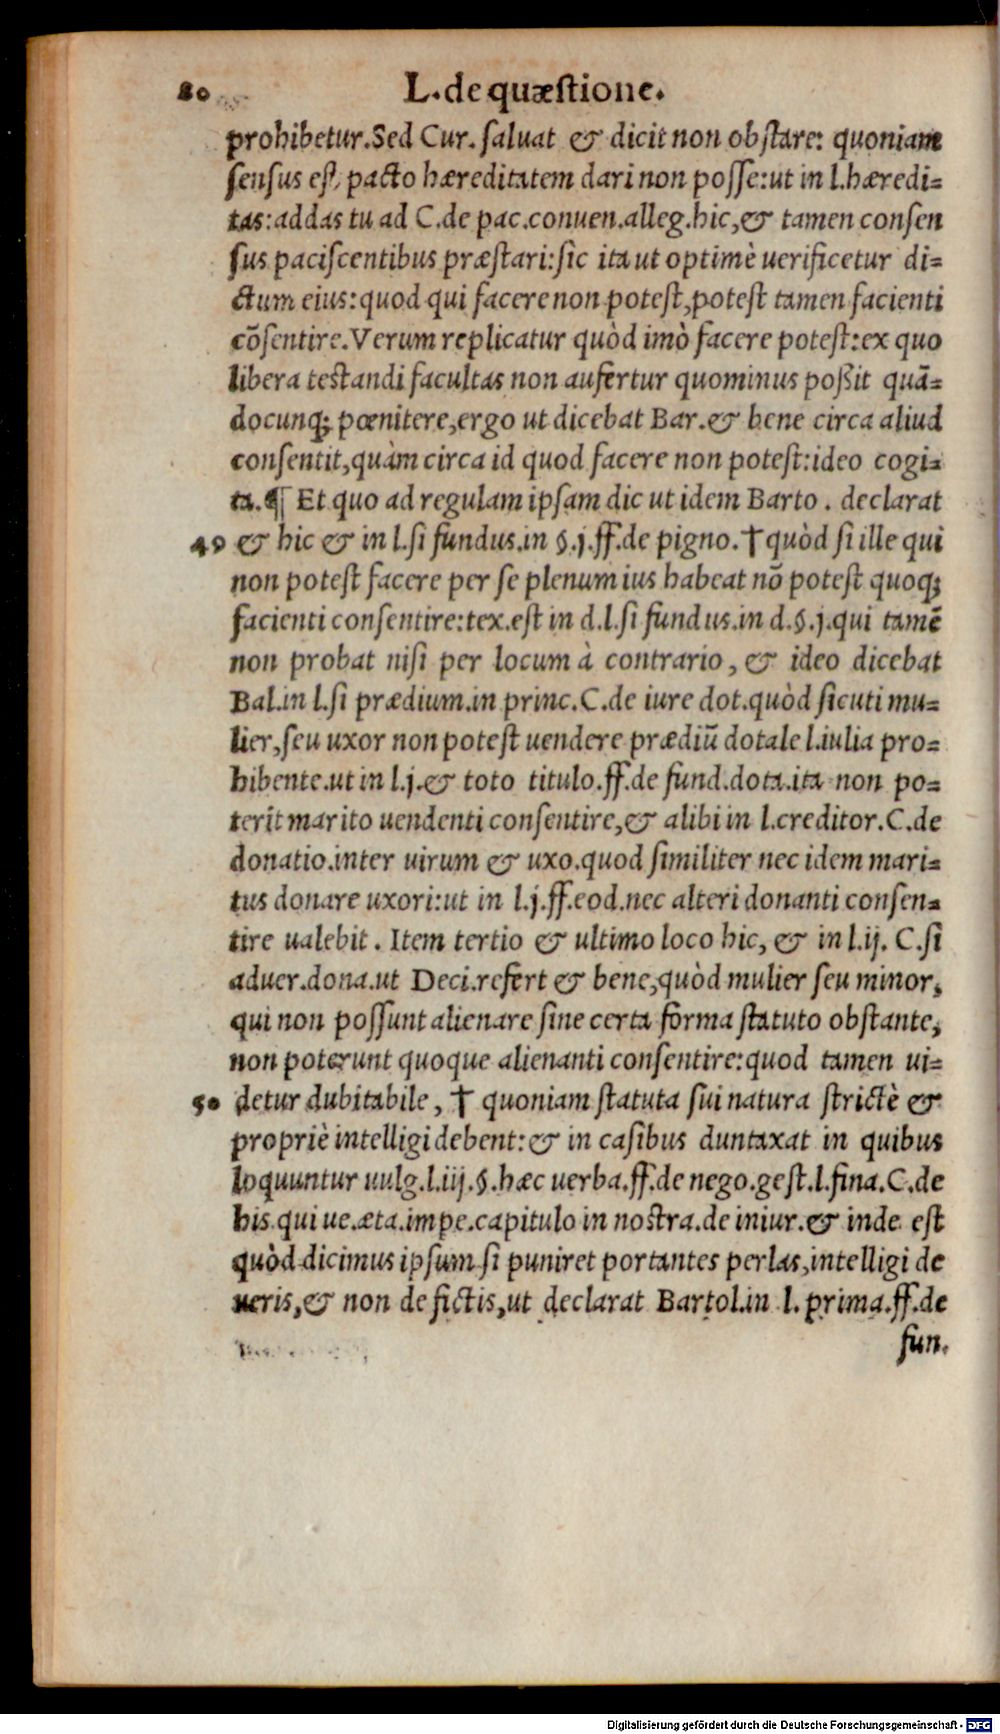 80 L. de quæſtione.
prohibetur. Sed Cur. ſaluat & dicit non obſtare: quoniam
ſenſus eſt, pacto hæreditatem dari non poſſe: ut in l. hæredi=
tas: addas tu ad C. de pac. conuen. alleg. hic, & tamen conſen
ſus paciſcentibus præſtari: ſic ita ut optimè uerificetur di=
ctum eius: quod qui facere non poteſt, poteſt tamen facienti
cõſentire. Verum replicatur quòd imò facere poteſt: ex quo
libera teſtandi facultas non aufertur quominus poßit quã=
docunq; pœnitere, ergo ut dicebat Bar. & bene circa aliud
conſentit, quàm circa id quod facere non poteſt: ideo cogi=
ta. ¶ Et quo ad regulam ipſam dic ut idem Barto. declarat
49 & hic & in l. ſi fundus. in §. j. ff. de pigno. † quòd ſi ille qui
non poteſt facere per ſe plenum ius habeat nõ poteſt quoq;
facienti conſentire: tex. eſt in d. l. ſi fundus. in d. §. j. qui tamẽ
non probat niſi per locum à contrario, & ideo dicebat
Bal. in l. ſi prædium. in princ. C. de iure dot. quòd ſicuti mu=
lier, ſeu uxor non poteſt uendere prædiũ dotale l. iulia pro=
hibente. ut in l. j. & toto titulo. ff. de fund. dota. ita non po=
terit marito uendenti conſentire, & alibi in l. creditor. C. de
donatio. inter uirum & uxo. quod ſimiliter nec idem mari=
tus donare uxori: ut in l. j. ff. eod. nec alteri donanti conſen=
tire ualebit. Item tertio & ultimo loco hic, & in l. ij. C. ſi
aduer. dona. ut Deci. refert & bene, quòd mulier ſeu minor,
qui non poſſunt alienare ſine certa forma ſtatuto obſtante,
non poterunt quoque alienanti conſentire: quod tamen ui=
50 detur dubitabile, † quoniam ſtatuta ſui natura ſtrictè &
propriè intelligi debent: & in caſibus duntaxat in quibus
loquuntur uulg. l. iij. §. hæc uerba. ff. de nego. geſt. l. fina. C. de
his qui ue. æta. impe. capitulo in noſtra. de iniur. & inde eſt
quòd dicimus ipſum ſi puniret portantes perlas, intelligi de
ueris, & non de fictis, ut declarat Bartol. in l. prima. ff. de
fun.
Digitalisierung gefördert durch die Deutsche Forschungsgemeinschaft - DFG